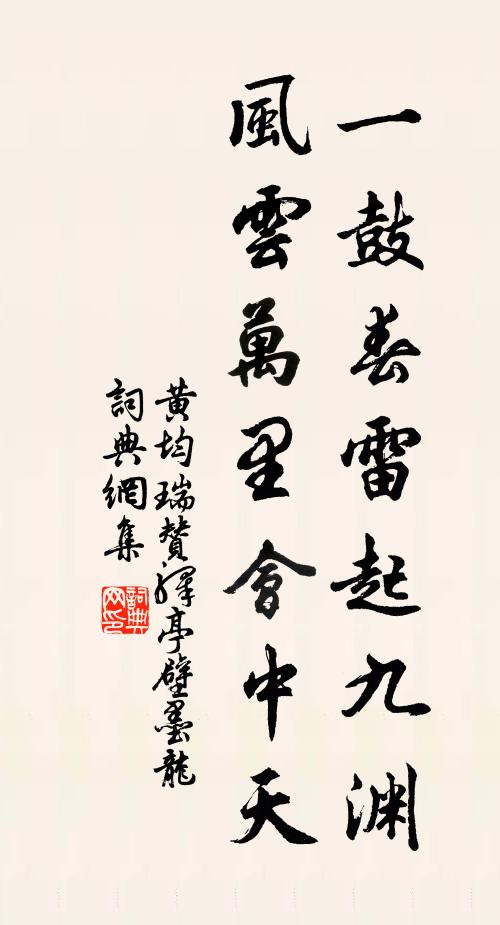 一鼓春雷起九渊
風雲萬里會中天
黃均瑞贊驛亭壁墨龍
詞典網集
詞典网印